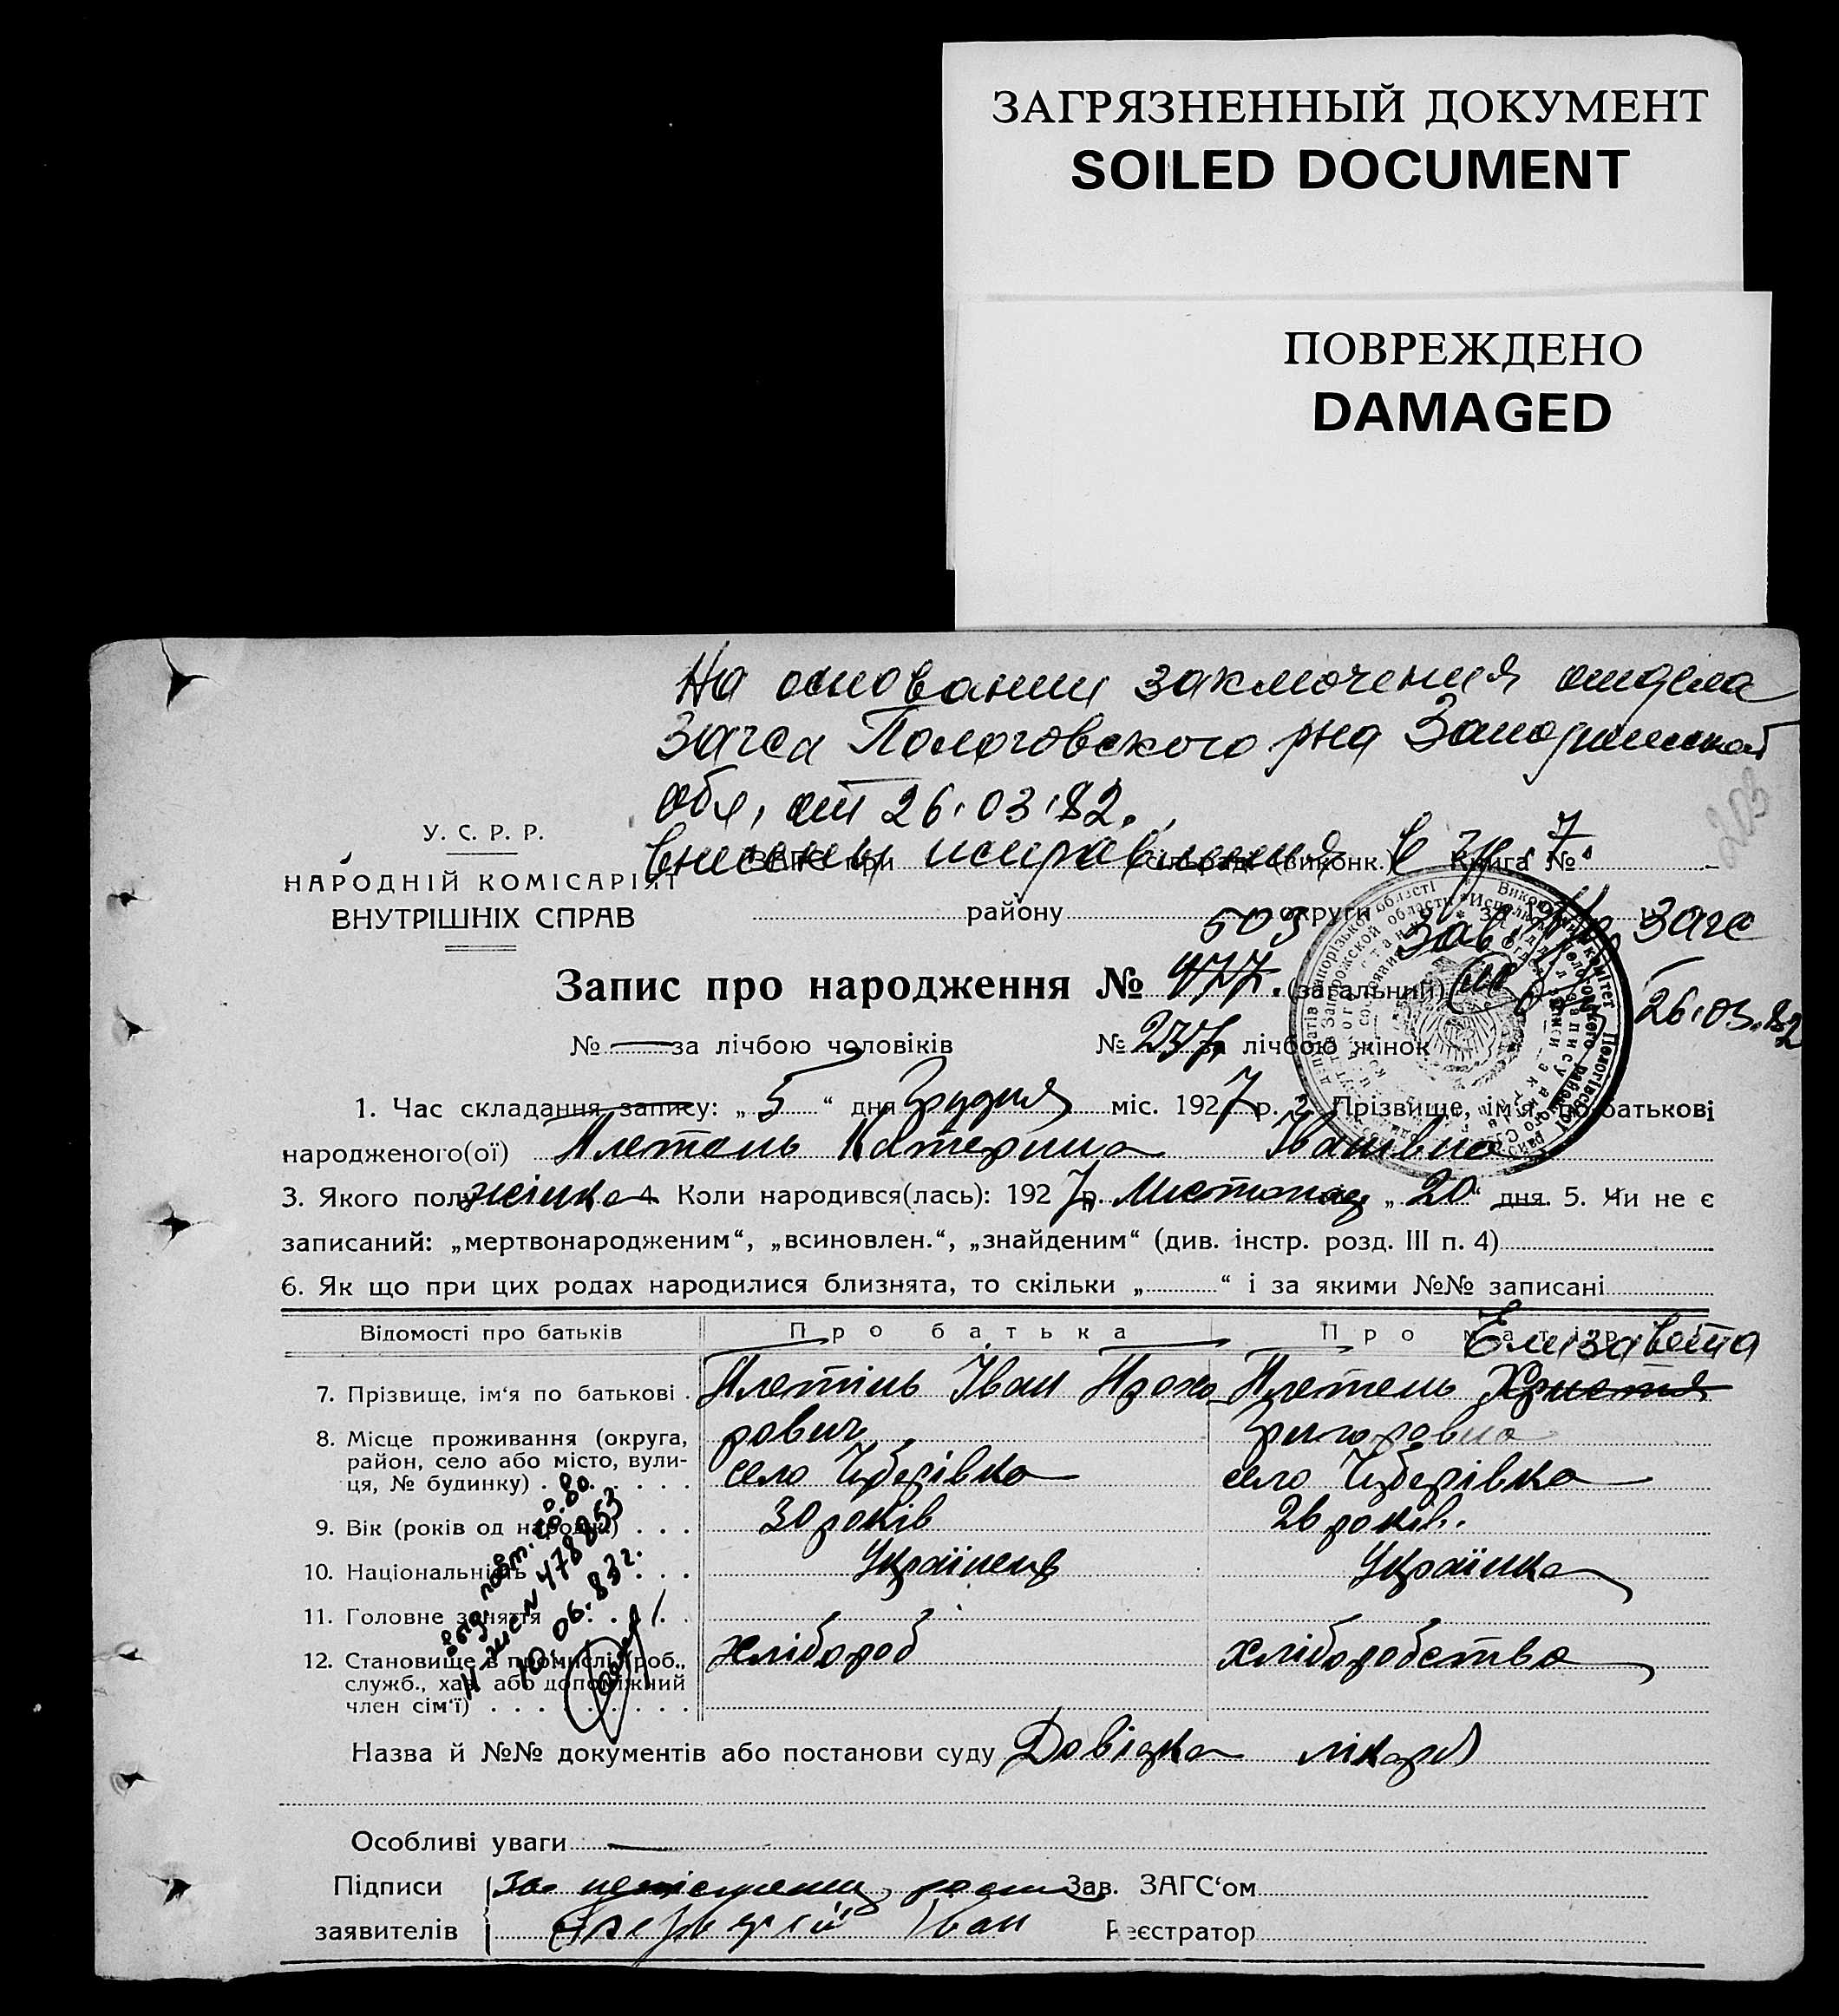 ЗАГРЯЗНЕННЫЙ ДОКУМЕНТ
SOILED DOCUMENT
ПОВРЕЖДЕНО
DAMAGED
На основании заключения отдела
Загса Пологовского р-на Запорожской
обл, от 26.03.82.
внесены исправления в гр. 7.
203
У. С. Р. Р.
НАРОДНІЙ КОМІСАРІЯТ
ВНУТРІШНІХ СПРАВ
ЗАГС при сільраді (виконк.) Книга №
району округи за 192 р.
Зав. Загс
26.03.82
503
Запис про народження № 477. (загальний)
№ — за лічбою чоловіків № 237 за лічбою жінок
1. Час складання запису: „ 5 “ дня Грудня міс. 1927 р. 2. Прізвище, ім'я, по батькові
народженого(ої) Плетень Катерина Іванівна
3. Якого полу жінка 4. Коли народився(лась): 1927 р. Листопад „ 20 “ дня. 5. Чи не є
записаний: „мертвонародженим“, „всиновлен.“, „знайденим“ (див. інстр. розд. III п. 4)
6. Як що при цих родах народилися близнята, то скільки „ “ і за якими №№ записані
Відомості про батьків Про батька Про матір
Елизавета
7. Прізвище, ім'я по батькові . Плетінь Іван Прохо Плетень Христя
рович Григоровна
8. Місце проживання (округа,
район, село або місто, вули-
ця, № будинку) . . . . . . село Чубарівка село Чубарівка
9. Вік (років од народж.) . . . 30 років 26 років.
10. Національність . . . Українець Українка
11. Головне заняття . . . .
12. Становище в промислі (роб., хлібороб хліборобство
служб., хаз. або допоміжний
член сім'ї) . . . . . . . .
478853
10.06.83 г.
Назва й №№ документів або постанови суду Довідка лікаря
Особливі уваги —
Підписи За Зав. ЗАГС'ом
заявителів Іван Реєстратор